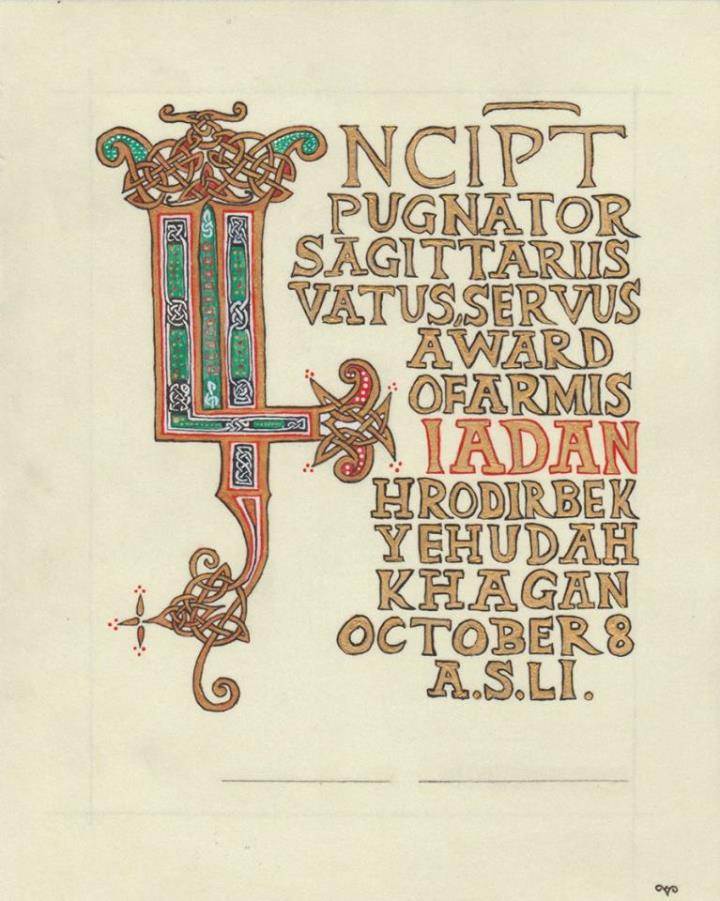 INCIPT
PUGNATOR
SAGITTARIIS
VATUS, SERVUS
AWARD
OF ARMIS
IADAN
HRODIR BEK
YEHUDAH
KHAGAN
OCTOBER 8
A.S.LI.